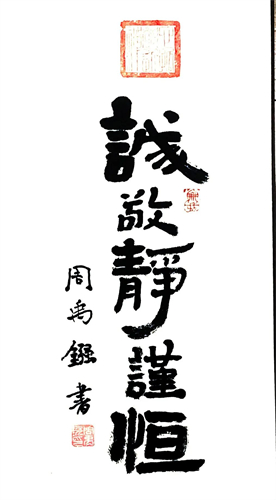 誠敬靜謹恒
周禹鏹書